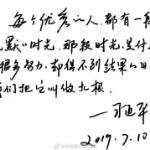 每个优秀的人,都有一段
沉默的时光。那段时光,是付出
很多努力,却得不到结果的日子
我们把它叫做扎根
2019.7.10